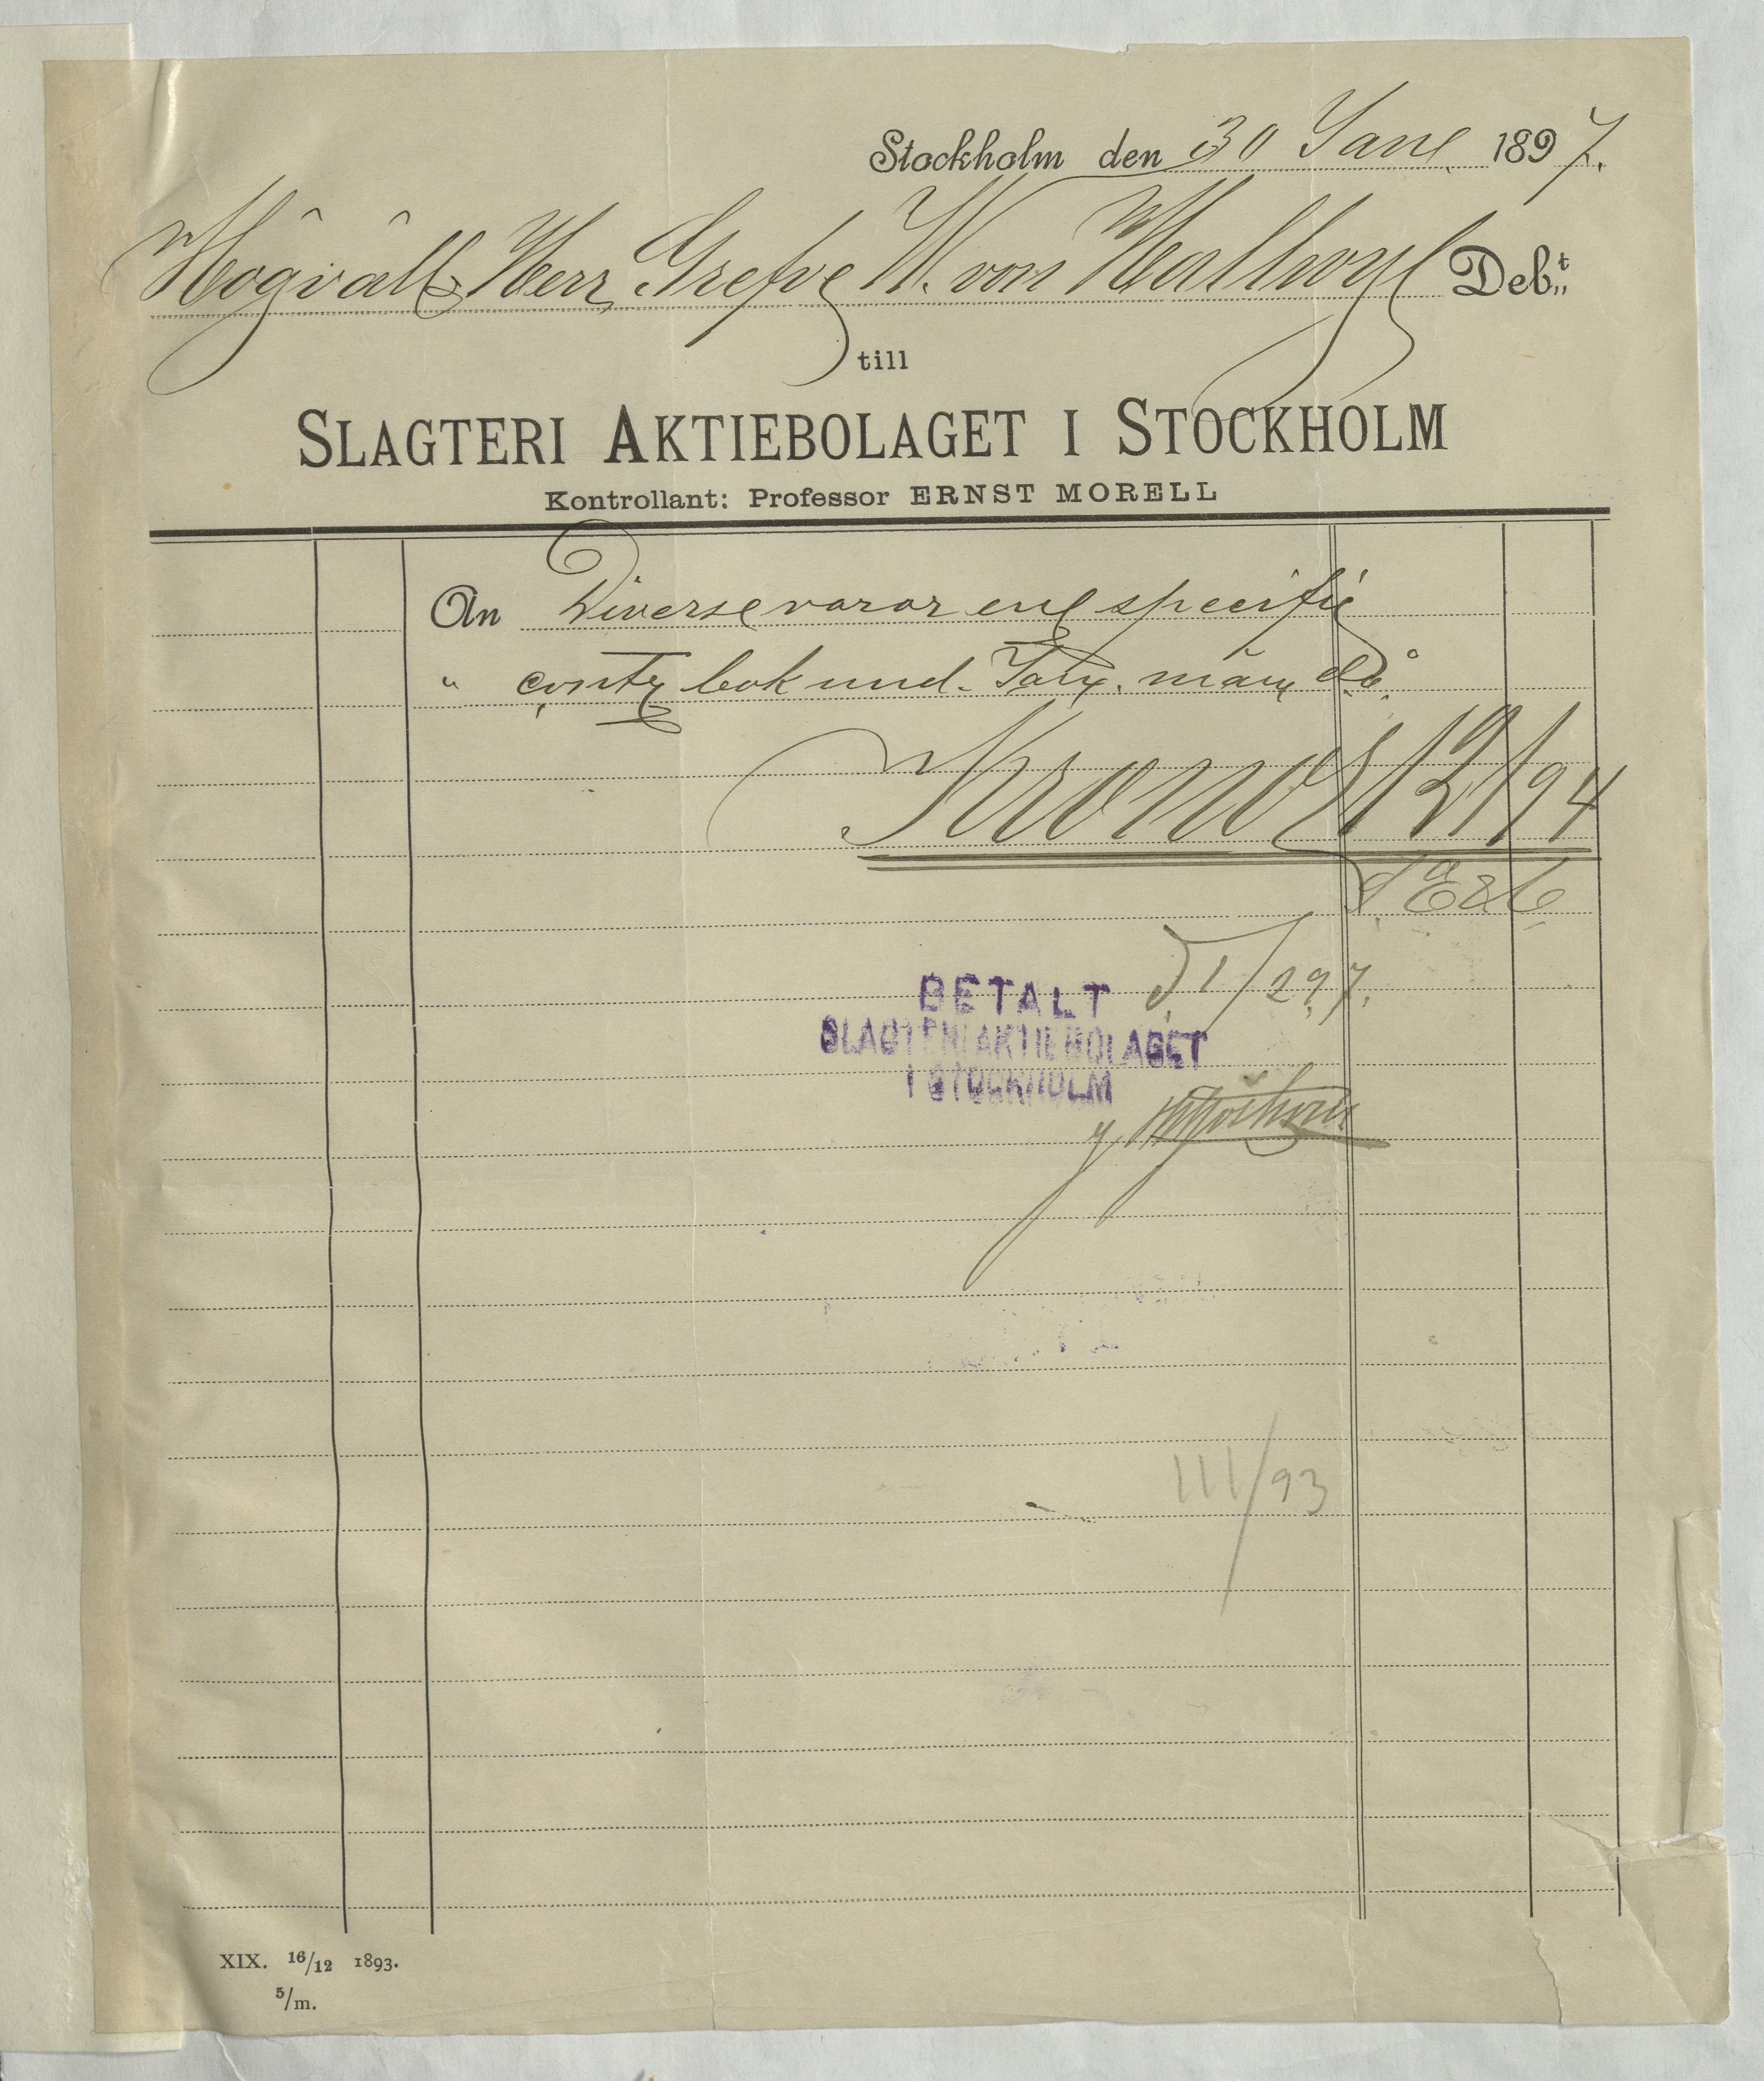 Stockholm den 30 Jan. 1897.
Högvälb Herr Grefve W. von Hallwyl Deb:t
till
SLAGTERI AKTIEBOLAGET I STOCKHOLM
Kontrollant: Professor ERNST MORELL
An Diverse varor enl specifi
" contr bok und. Jan. mån
Kronor 129/94
S. E & O.
BETALT d 1/2 97.
SLAGTERI AKTIEBOLAGET
I STOCKHOLM
111/93
XIX. 16/12 1893.
5/m.